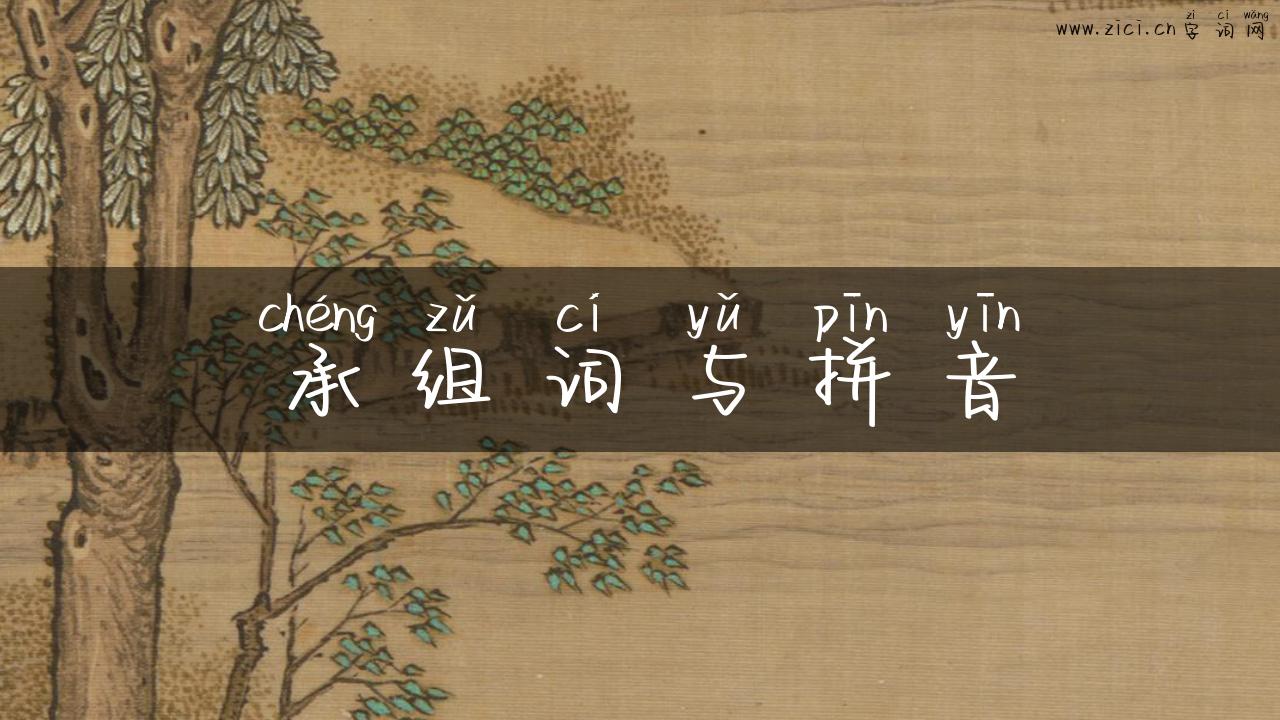 zì cí wǎng
www.zici.cn 字词网
chéng zǔ cí yǔ pīn yīn
承组词与拼音